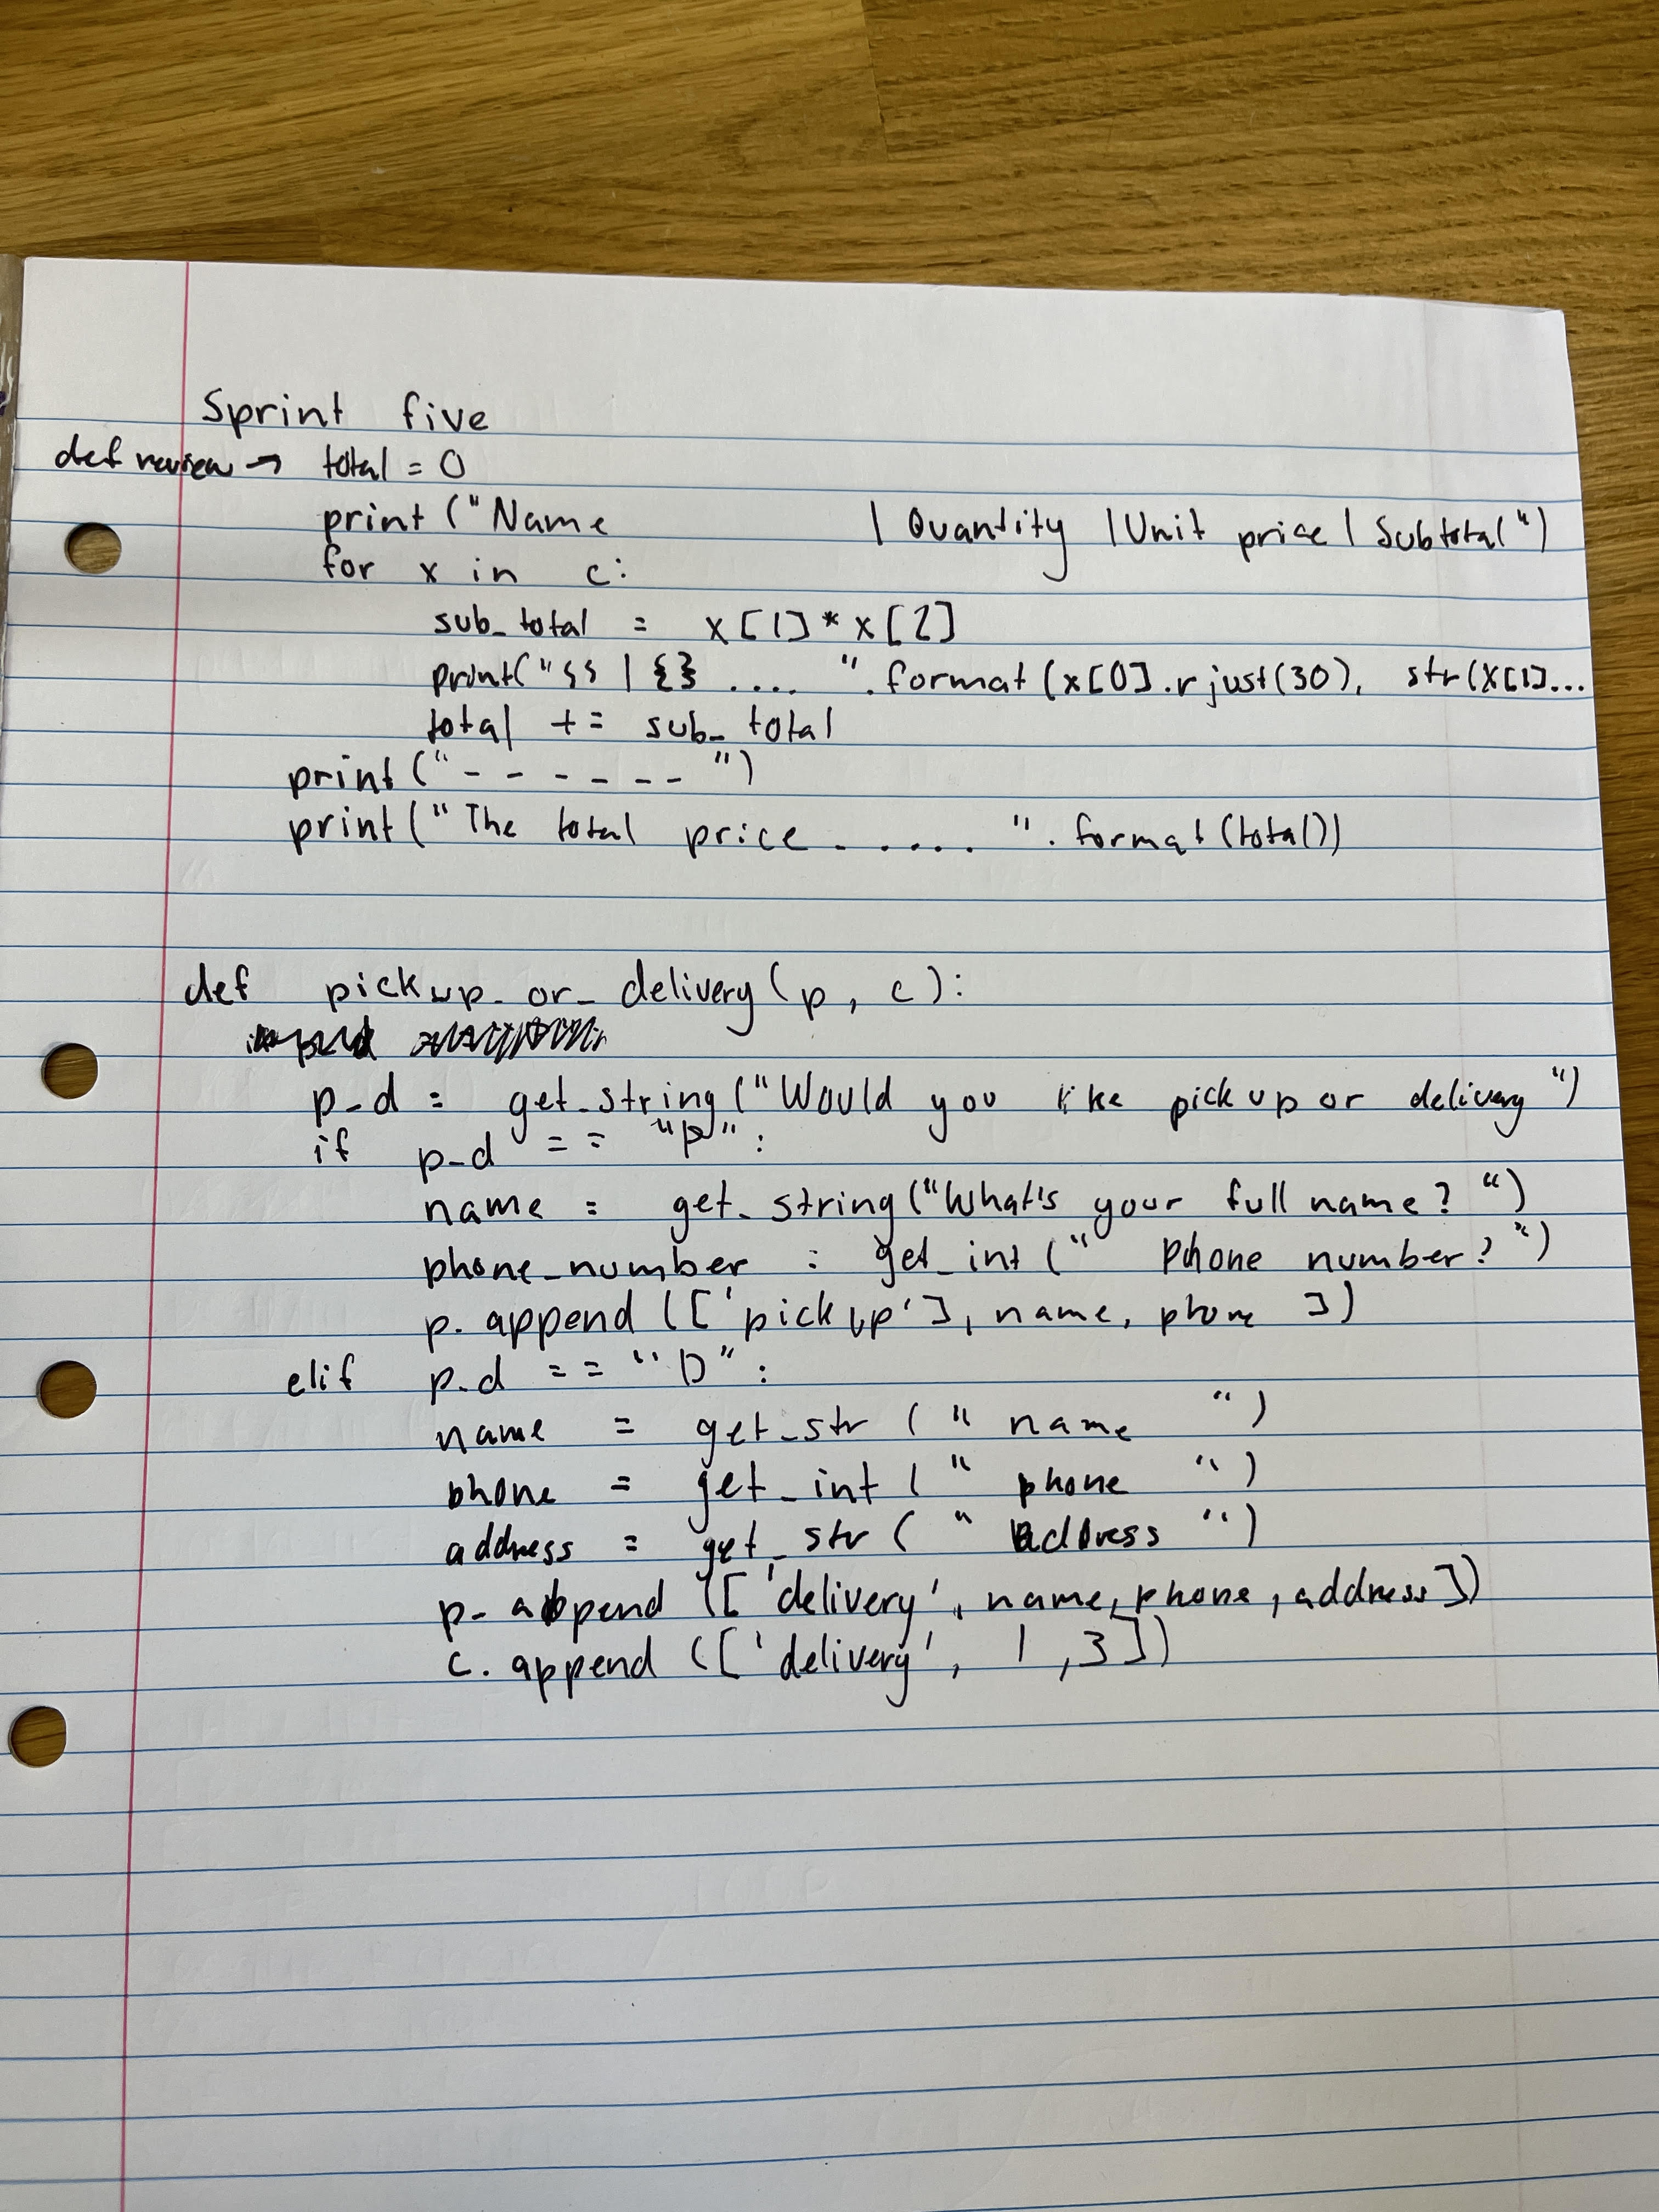 Sprint five
def review → total = 0
print ("Name | Quantity | Unit price | Subtotal")
for x in c:
sub_total = x[1]*x[2]
print("{} | {} .... ".format (x[0].rjust(30), str(x[1]...
total += sub_total
print ("- - - - - - ")
print ("The total price . . . . . ". format (total))
def pickup_or_delivery (p, c):
p_d = get_string ("Would you like pick up or delivery ")
if p_d == "P":
name = get_string ("What's your full name? ")
phone_number = get_int (" Phone number? ")
p. append (['pick up'], name, phone ])
elif p_d == "D":
name = get_str ( " name ")
phone = get_int ( " phone ")
address = get_str ( " address ")
p. append (['delivery', name, phone, address])
c. append (['delivery', 1 ,3])